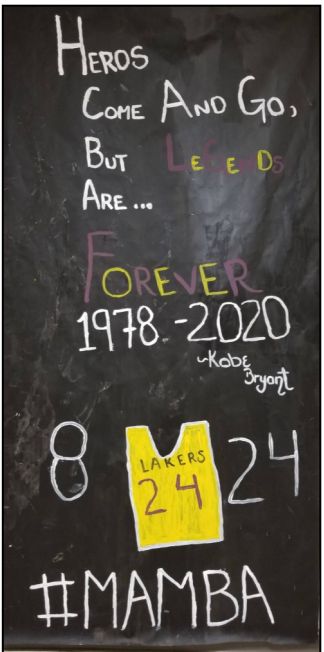 HEROS
COME AND GO,
BUT LEGENDS
ARE...
FOREVER
1978-2020
~Kobe
Bryant
8 LAKERS 24
24
#MAMBA